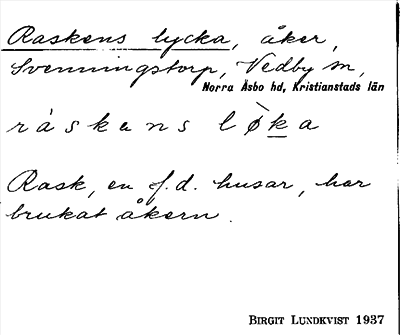 Raskens lycka, åker,
Svenningstorp, Vedby sn,
Norra Åsbo hd, Kristianstads län
råskens lø̀ka
Rask, en f.d. husar, har
brukat åkern.
BIRGIT LUNDKVIST 1937